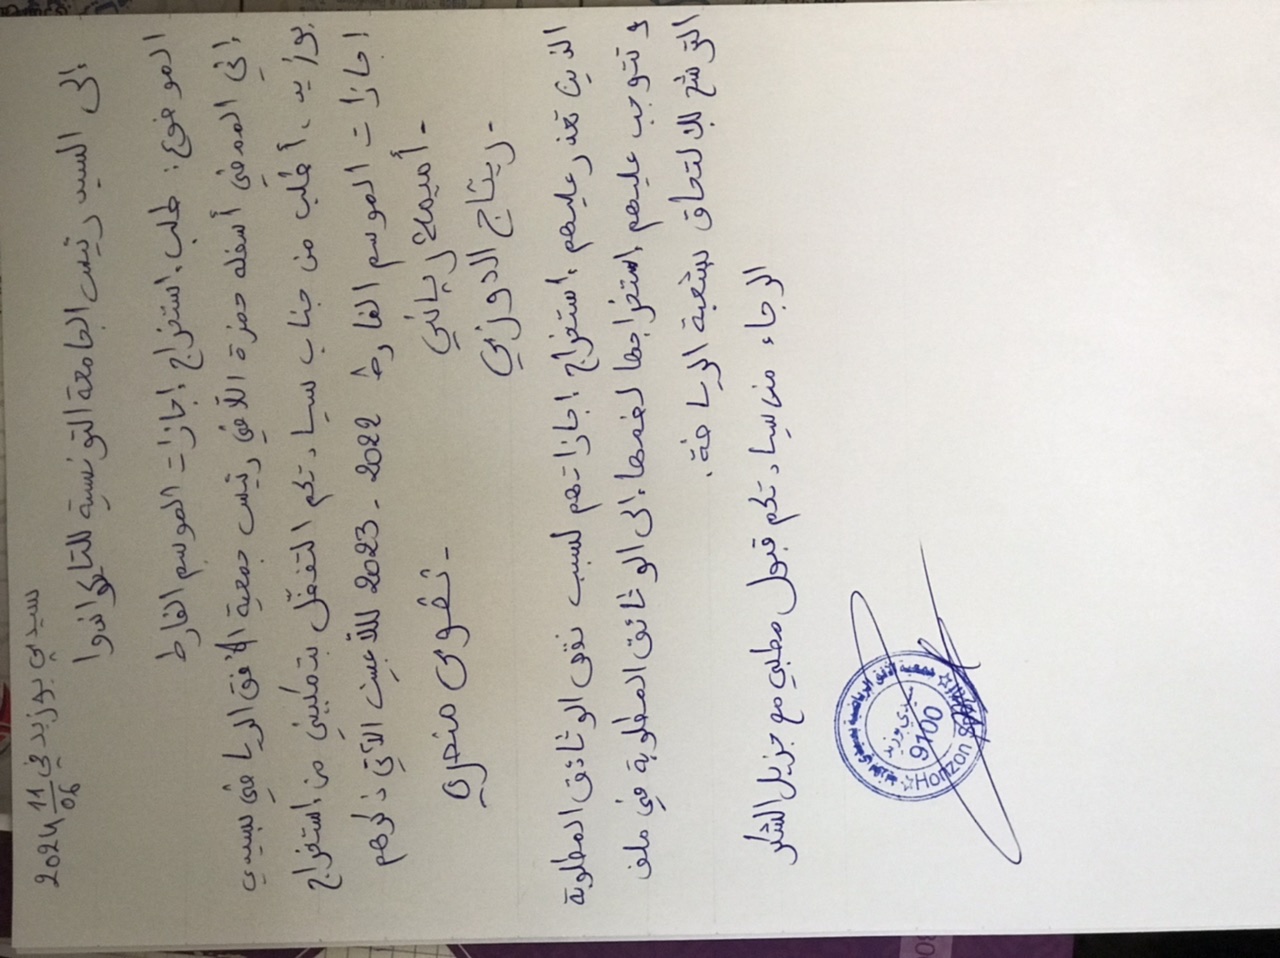 سيدي بوزيد في 11/06 2024
إلى السيد رئيس الجامعة التونسية للتايكواندوا
الموضوع: طلب استخراج إجازات الموسم الفارط
إني الممضي أسفله حمزة اللافي رئيس جمعية الأفق الرياضي بسيدي
بوزيد، أطلب من جناب سيادتكم التفضل بتمكيني من استخراج
إجازات الموسم الفارط 2022 - 2023 للاعبين الآتي ذكرهم
- أميمة زياني
- تقوى منصري
- ريتاج الدوزي
الذين تعذر عليهم استخراج إجازاتهم لسبب نقص الوثائق المطلوبة
و تتوجب عليهم استخراجها لضمها إلى الوثائق المطلوبة في ملف
الترشح للالتحاق بشعبة الرياضة.
الرجاء من سيادتكم قبول مطلبي مع جزيل الشكر
جمعية الأفق الرياضية بسيدي بوزيد
سيدي بوزيد
9100
Horizon